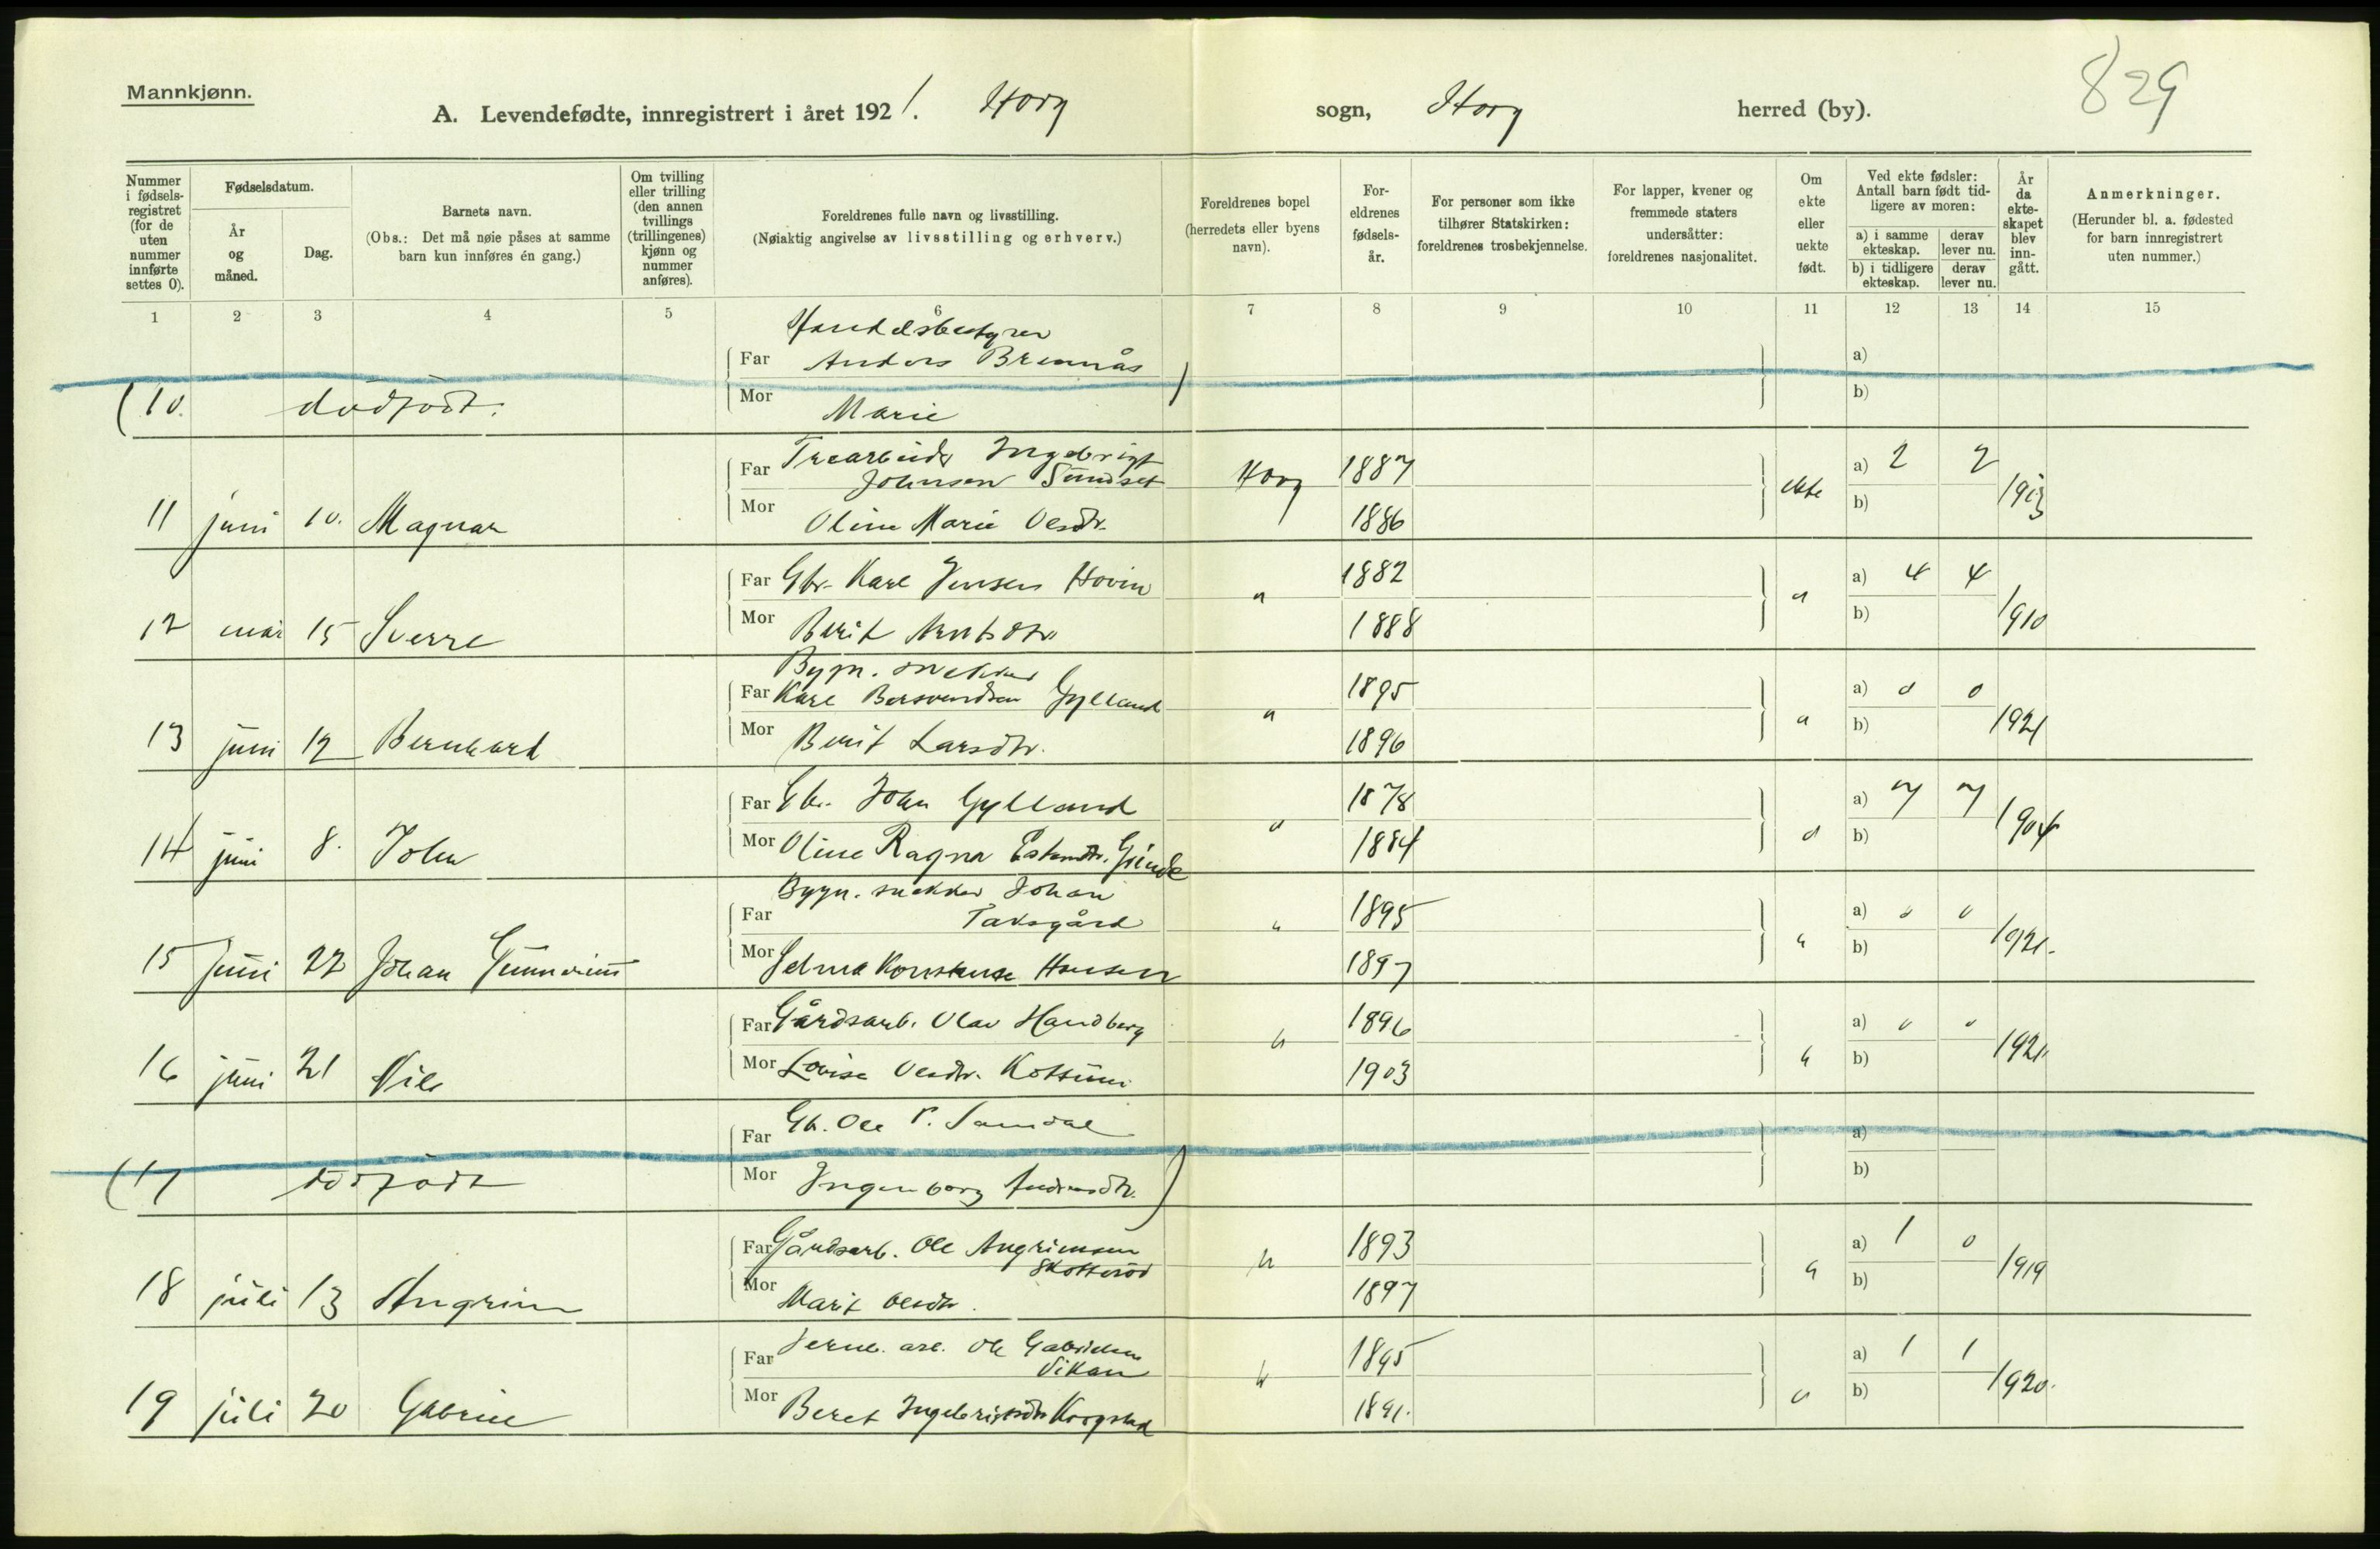 Mannkjønn.
829
A. Levendefødte, innregistrert i året 1921. Horg sogn, Horg herred (by).
Nummer i fødselsregistret (for de uten nummer innførte settes 0).
Fødselsdatum.
År og måned.
Dag.
Barnets navn.
(Obs.: Det må nøie påses at samme barn kun innføres én gang.)
Om tvilling eller trilling (den annen tvillings (trillingenes) kjønn og nummer anføres).
Foreldrenes fulle navn og livsstilling.
(Nøiaktig angivelse av livsstilling og erhverv.)
Foreldrenes bopel (herredets eller byens navn).
Foreldrenes fødselsår.
For personer som ikke tilhører Statskirken: foreldrenes trosbekjennelse.
For lapper, kvener og fremmede staters undersåtter: foreldrenes nasjonalitet.
Om ekte eller uekte født.
Ved ekte fødsler: Antall barn født tidligere av moren:
a) i samme ekteskap. derav lever nu.
b) i tidligere ekteskap. derav lever nu.
År da ekteskapet blev inngått.
Anmerkninger.
(Herunder bl. a. fødested for barn innregistrert uten nummer.)
1 2 3 4 5 6 7 8 9 10 11 12 13 14 15
Handelsbestyrer
Far Anders Bremnås a)
(10. dødfødt. Mor Marie ) b)
Far Trearbeider Ingebrigt Johnsen Sundset Horg 1887 ekte a) 2 2 1913
11 juni 10. Magnar Mor Oline Marie Olsdtr. 1886 b)
Far Gbr. Karl Jensen Hovin " 1882 " a) 4 4 1910
12 mai 15 Sverre Mor Berit Arntsdtr. 1888 b)
Bygn. snekker
Far Karl Bersvendsen Gylland " 1895 " a) 0 0 1921
13 juni 12 Bernhard Mor Berit Larsdtr. 1896 b)
Far Gbr. John Gylland " 1878 " a) 7 7 1904
14 juni 8. John Mor Oline Ragna Estensdtr. Grinde 1884 b)
Bygn. snekker Johan
Far Taksgård " 1895 " a) 0 0 1921.
15 juni 22 Johan Mor Selma Konstanse Hansen 1897 b)
Far Gårdsarb. Olav Handberg " 1896 " a) 0 0 1921.
16 juni 21 Nils Mor Lovise Olsdtr. Kottum 1903 b)
Far Gb. Ole P. Samdal a)
(17 dødfødt Mor Ingeborg Andersdtr. ) b)
Far Gårdsarb. Ole Angrimsen " 1893 " a) 1 0 1919
18 juli 13 Angrim Mor Marit Olsdtr. 1897 b)
Far Jernb. arb. Ole Gabrielsen Vikan " 1895 " a) 1 1 1920.
19 juli 20 Gabriel Mor Beret Ingebrigtsdtr. Krogstad 1891. b)